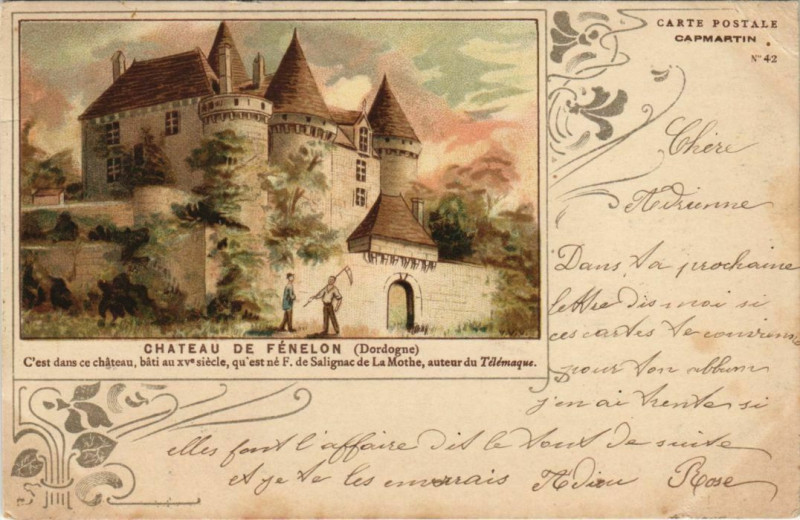 CARTE POSTALE
CAPMARTIN
N° 42
CHATEAU DE FÉNELON (Dordogne)
C'est dans ce château, bâti au XVe siècle, qu'est né F. de Salignac de La Mothe, auteur du Télémaque.
Chère
Adrienne
Dans ta prochaine
lettre dis moi si
ces cartes te convienne
pour ton album
j'en ai trente si
elles font l'affaire dit le tout de suite
et je te les enverrais Adieu Rose